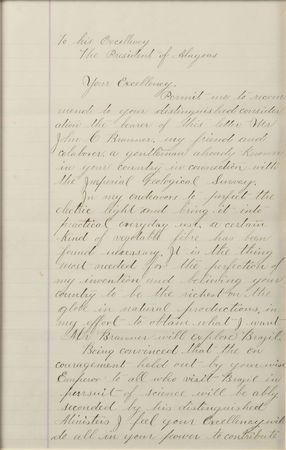 To his Excellency
The President of Alagoas
Your Excellency.
Permit me to recom
mend to your distinguished consider
ation the bearer of this letter Mr
John C Branner, my friend and
colaborer, a gentleman already known
in your country in connection with
the Imperial Geological Survey.
In my endeavors to perfect the
electric light and bring it into
practical everyday use, a certain
kind of vegetable fibre has been
found necessary. It is the thing
most needed for the perfection of
my invention and believing your
country to be the richest on the
globe in natural productions, in
my effort to obtain what I want
Mr Branner will explore Brazil.
Being convinced that the en
couragement held out by your wise
Emperor to all who visit Brazil in
pursuit of science will be ably
seconded by his distinguished
Ministers I feel your Excellency will
do all in your power to contribute